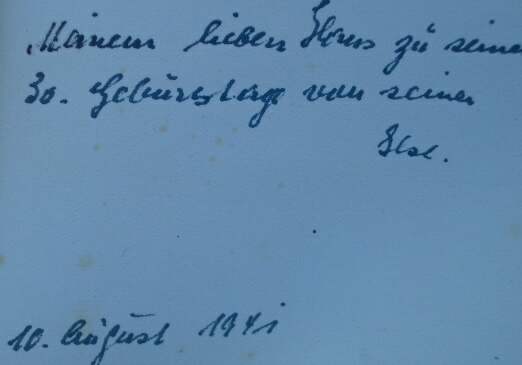 Meinem lieben Hans zu seinem
30. Geburtstage von seiner
Ilse.
10. August 1941